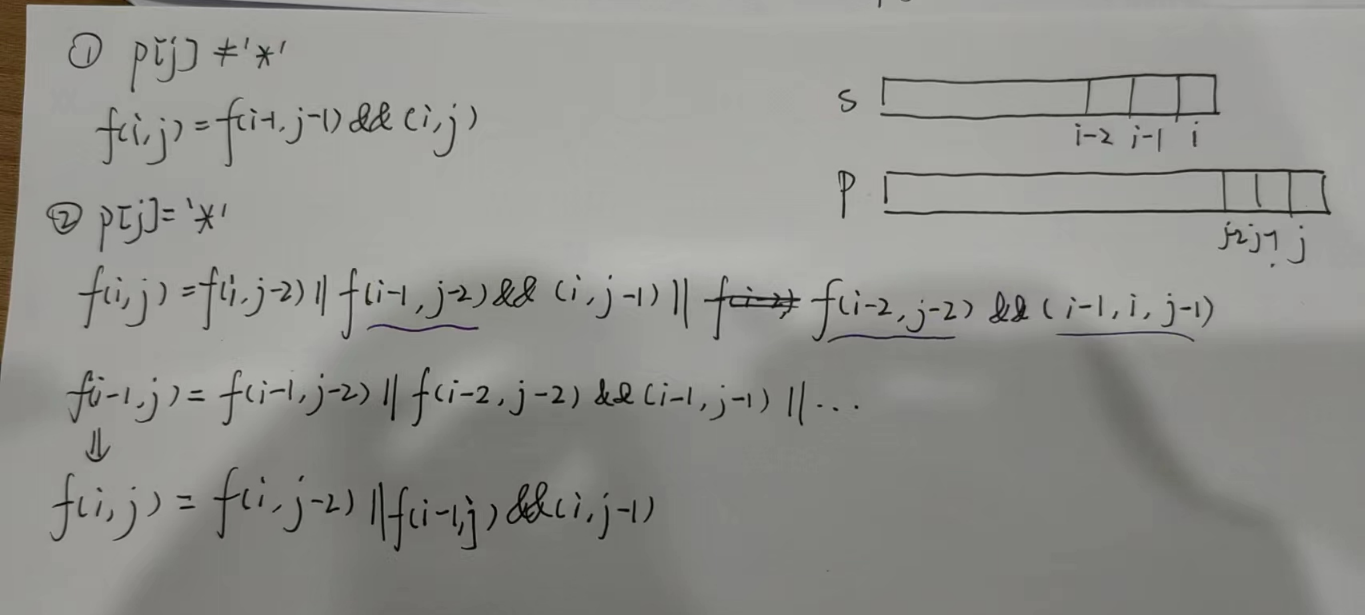 ① p[j] ≠ '*'
f(i,j) = f(i-1, j-1) && (i,j)
② p[j] = '*'
f(i,j) = f(i,j-2) || f(i-1, j-2) && (i, j-1) || f(i-2, j-2) && (i-1, i, j-1)
f(i-1,j) = f(i-1,j-2) || f(i-2, j-2) && (i-1, j-1) || ...
⇓
f(i,j) = f(i,j-2) || f(i-1,j) && (i,j-1)
s
i-2 i-1 i
p
j-2 j-1 j